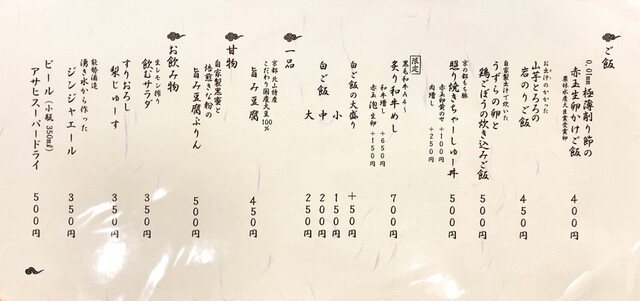 ご飯
0.01㎜極薄削り節の
赤玉生卵かけご飯
農林水産大臣賞受賞卵
400円
お出汁のかかった
山芋とろろの
岩のりご飯
450円
自家製出汁で炊いた
うずらの卵と
鶏ごぼうの炊き込みご飯
500円
京の都もち豚
照り焼きちゃーしゅー丼
500円
赤玉卵黄のせ +100円
肉増し +250円
限定
黒毛和牛みんく
炙り和牛めし
700円
和牛増し +650円
赤玉 泡生卵 +150円
一品
白ご飯の大盛り +50円
白ご飯 小 150円
中 200円
大 250円
甘物
京都 北山特産
こだわり国産大豆100%
旨み豆腐
450円
自家製黒蜜と
焙煎きな粉の
旨み豆腐ぷりん
500円
お飲み物
生レモン搾り
飲むサラダ
350円
すりおろし
梨じゅーす
350円
能勢酒造
湧き水から作った
ジンジャエール
350円
ビール（小瓶350㎖）
アサヒスーパードライ
500円